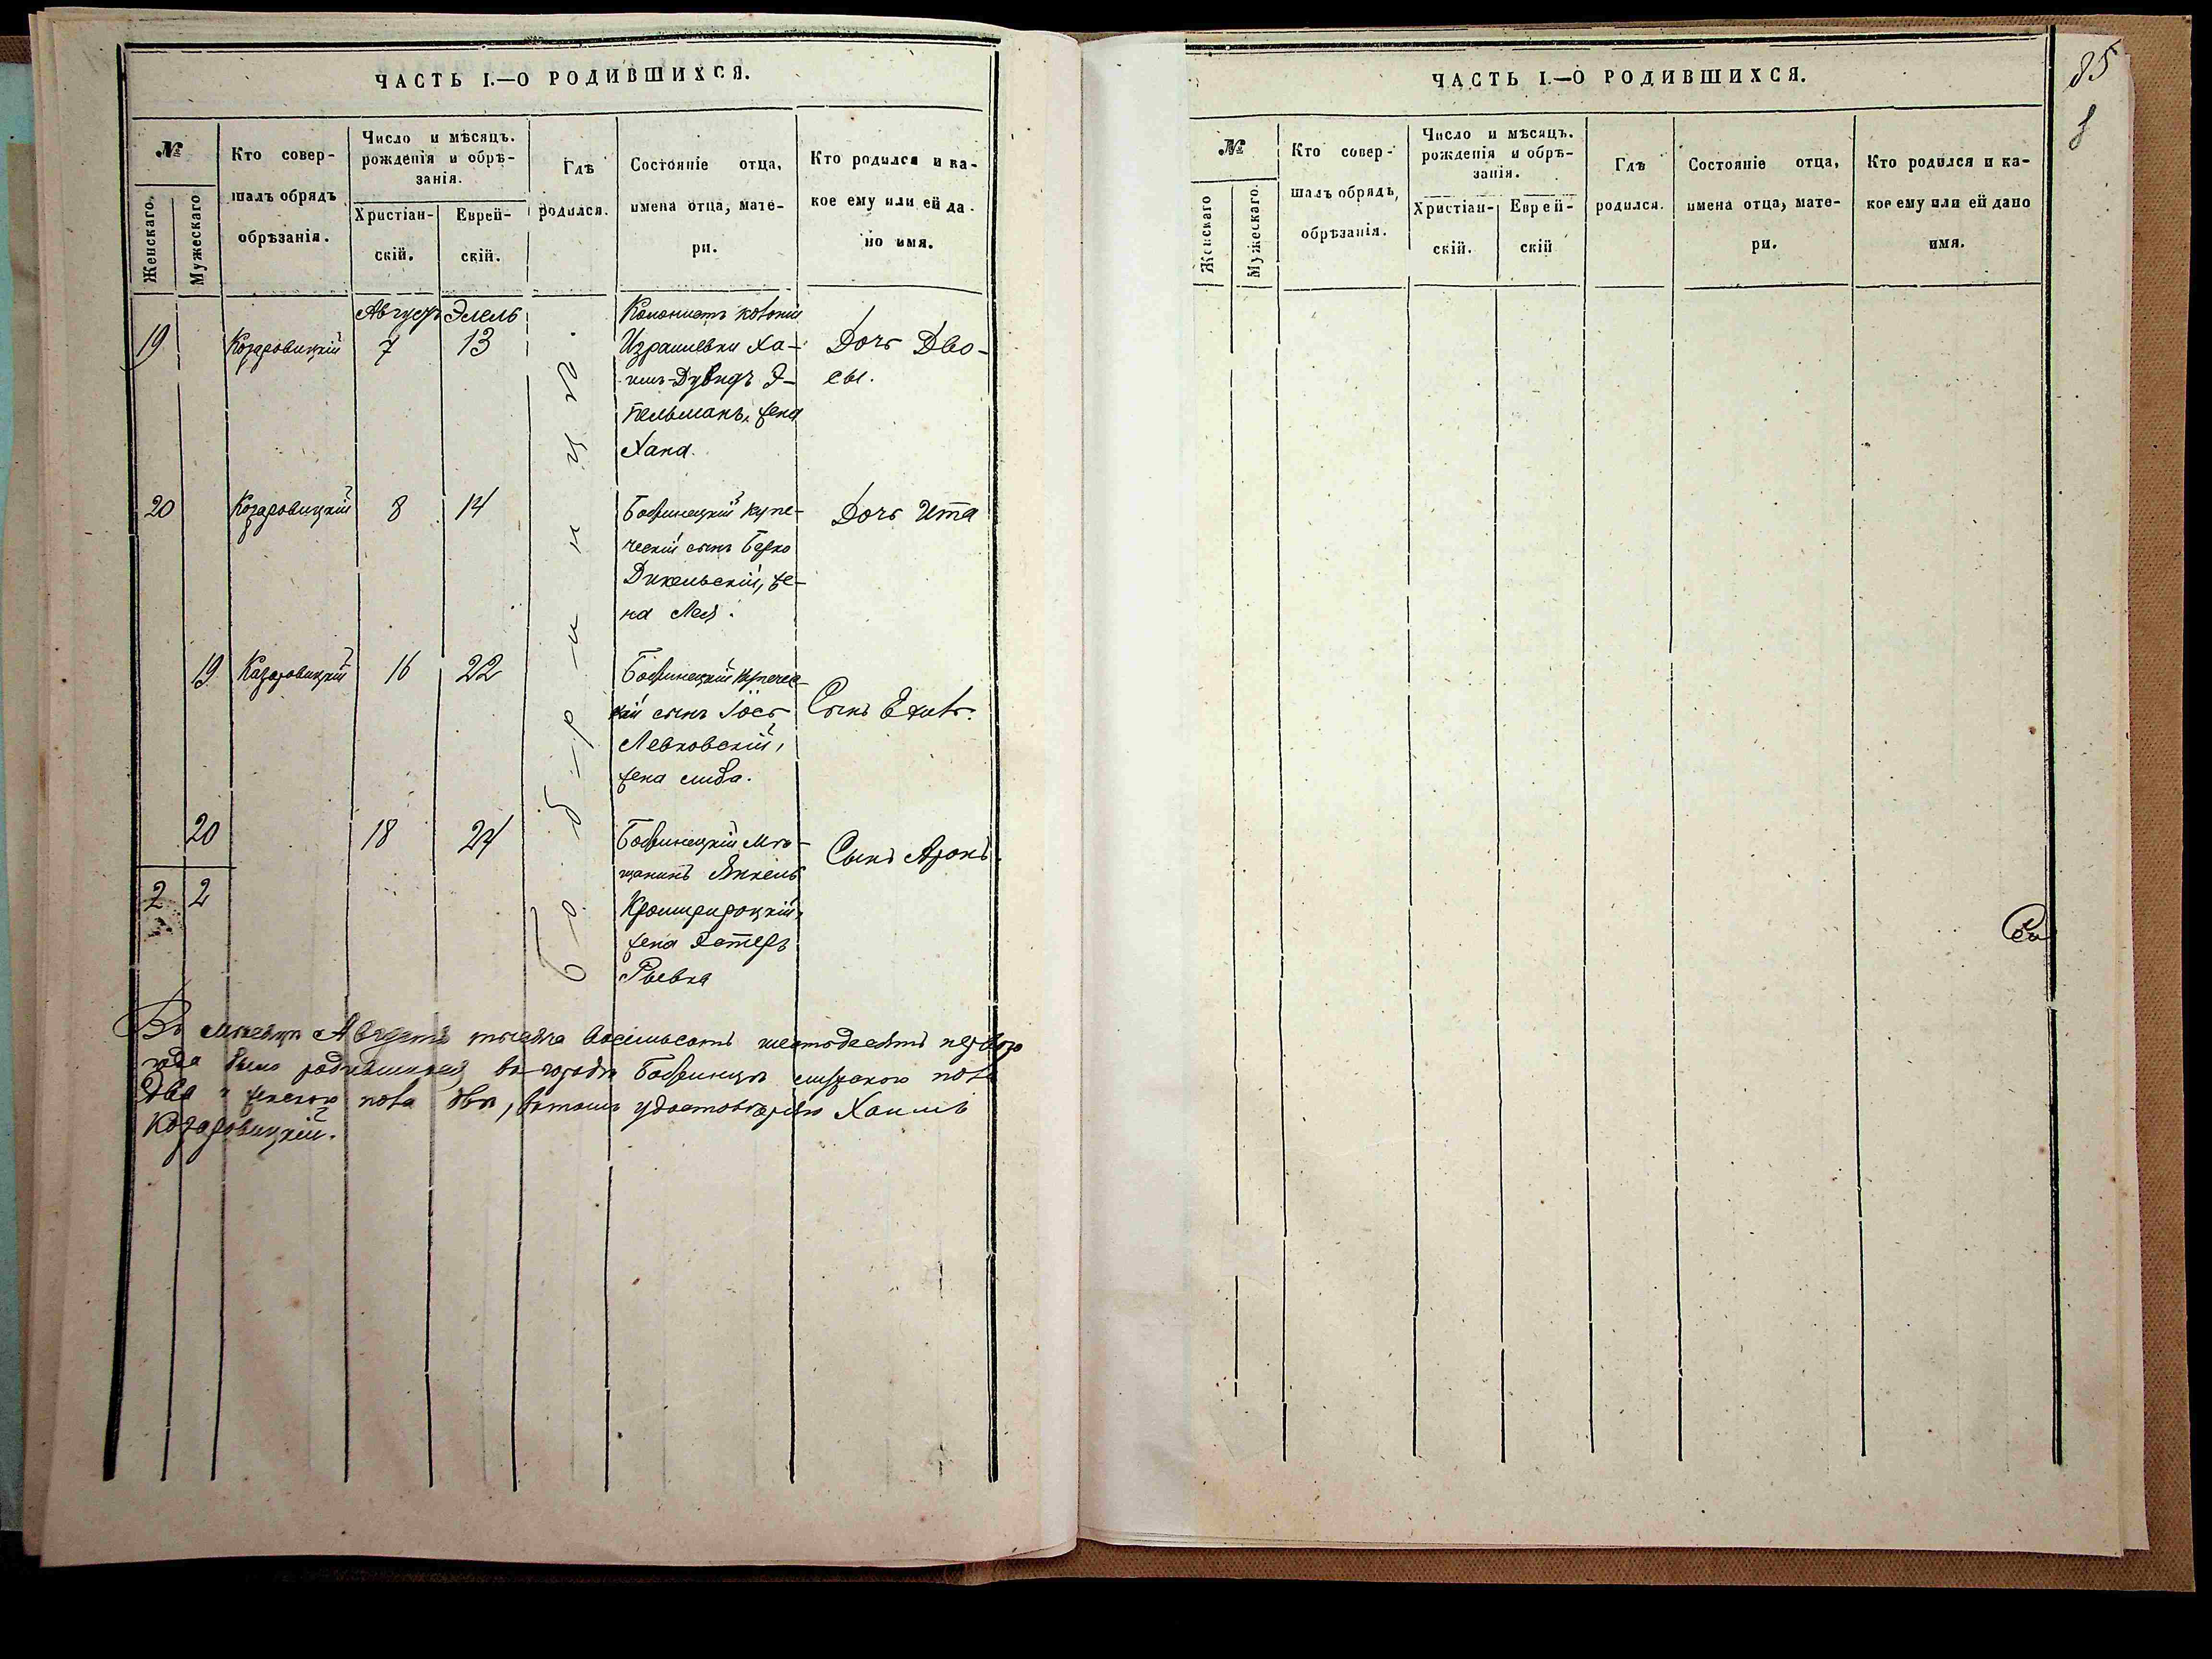 ЧАСТЬ I.—О РОДИВШИХСЯ.
№
Женскаго.
Мужескаго
Кто совер-
шалъ обрядъ
обрѣзанія.
Число и мѣсяцъ.
рожденія и обрѣ-
занія.
Христіан-
скій.
Еврей-
скій.
Гдѣ
родился.
Состояніе отца,
имена отца, мате-
ри.
Кто родился и ка-
кое ему или ей да-
но имя.
Августъ Элель
19 Козаровицкій 7 13
Колонистъ колоніи
Израилевки Ха-
имъ-Дувидъ Э-
тельманъ, жена
Хана.
Дочь Дво-
сы.
20 Козаровицкій 8 14
Бобринецкій купе-
ческій сынъ Берко
Дикельскій, же-
на Лея.
Дочь Ита
19 Козаровицкій 16 22
Бобринецкій купечес-
кій сынъ Іось
Левковскій,
жена слиба.
Сынъ Ехиль.
20 18 24
Бобринецкій мѣ-
щанинъ Янкель
жена Эстеръ
Рывка
Сынъ Аронъ.
2 2
Бобринцѣ
Въ мѣсяцѣ Августѣ тысяча восемьсотъ шестьдесятъ перваго
года было родившихся въ городѣ Бобринцѣ мужскаго пола
два и женскаго пола двѣ, въ томъ удостовѣряю Хаимъ
Козаровицкій.
ЧАСТЬ I.—О РОДИВШИХСЯ.
85
8
№
Женскаго
Мужескаго.
Кто совер-
шалъ обрядъ,
обрѣзанія.
Число и мѣсяцъ.
рожденія и обрѣ-
занія.
Христіан-
скій.
Еврей-
скій
Гдѣ
родился.
Состояніе отца,
имена отца, мате-
ри.
Кто родился и ка-
кое ему или ей дано
имя.